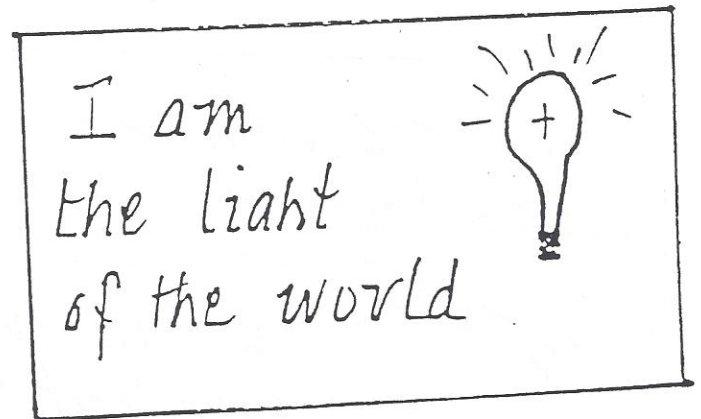 I am
the liaht
of the world